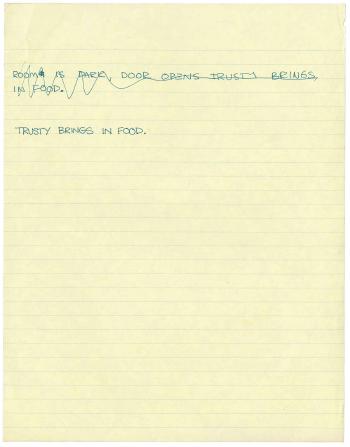 ROOM IS DARK, DOOR OPENS TRUSTY BRINGS
IN FOOD.
TRUSTY BRINGS IN FOOD.